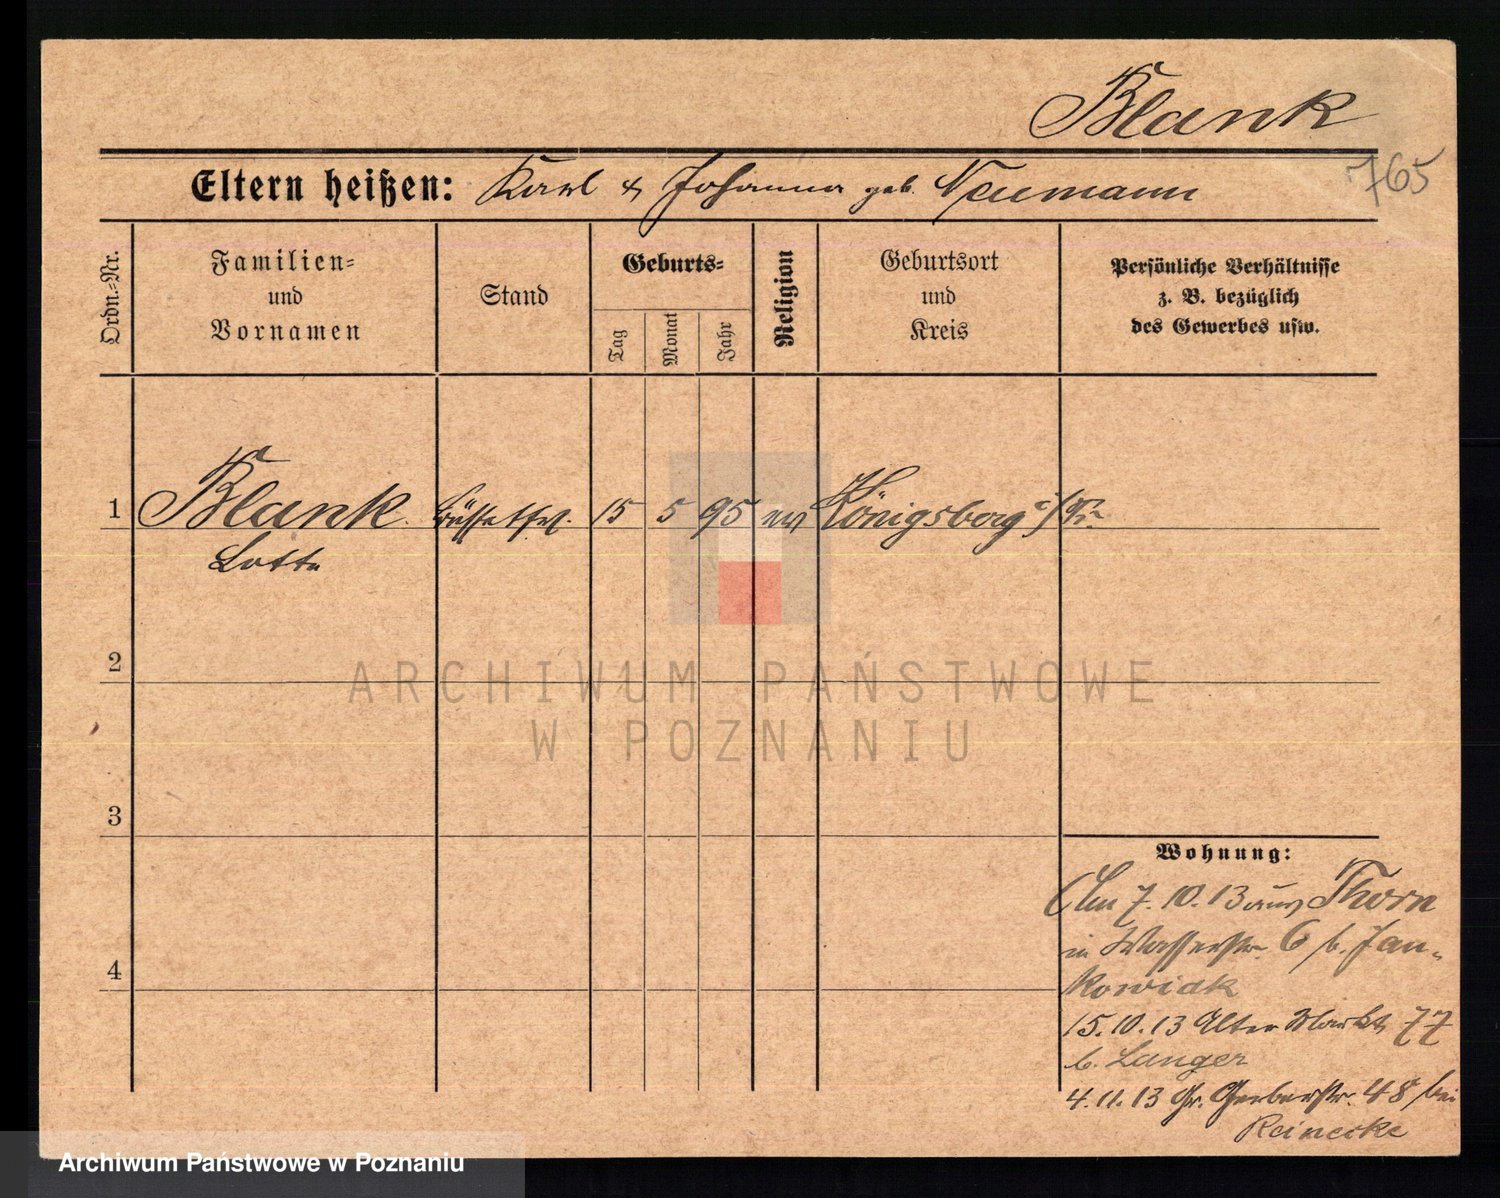 Blank
765
Eltern heißen: Karl & Johanna geb. Neumann
Ordn.-Nr.
Familien-
und
Vornamen
Stand
Geburts-
Tag
Monat
Jahr
Religion
Geburtsort
und
Kreis
Persönliche Verhältnisse
z. B. bezüglich
des Gewerbes usw.
1 Blank Büffetfrl. 15 5 95 ev Königsberg i/Pr.
Lotte
2
ARCHIWUM PAŃSTWOWE
W POZNANIU
3
Wohnung:
Am 7.10.13 aus Thorn
in Wasserstr. 6 b. Jan-
kowiak
4
15.10.13 Alter Markt 77
b. Langer
4.11.13 Gr. Gerberstr. 48 bei
Reinecke
Archiwum Państwowe w Poznaniu